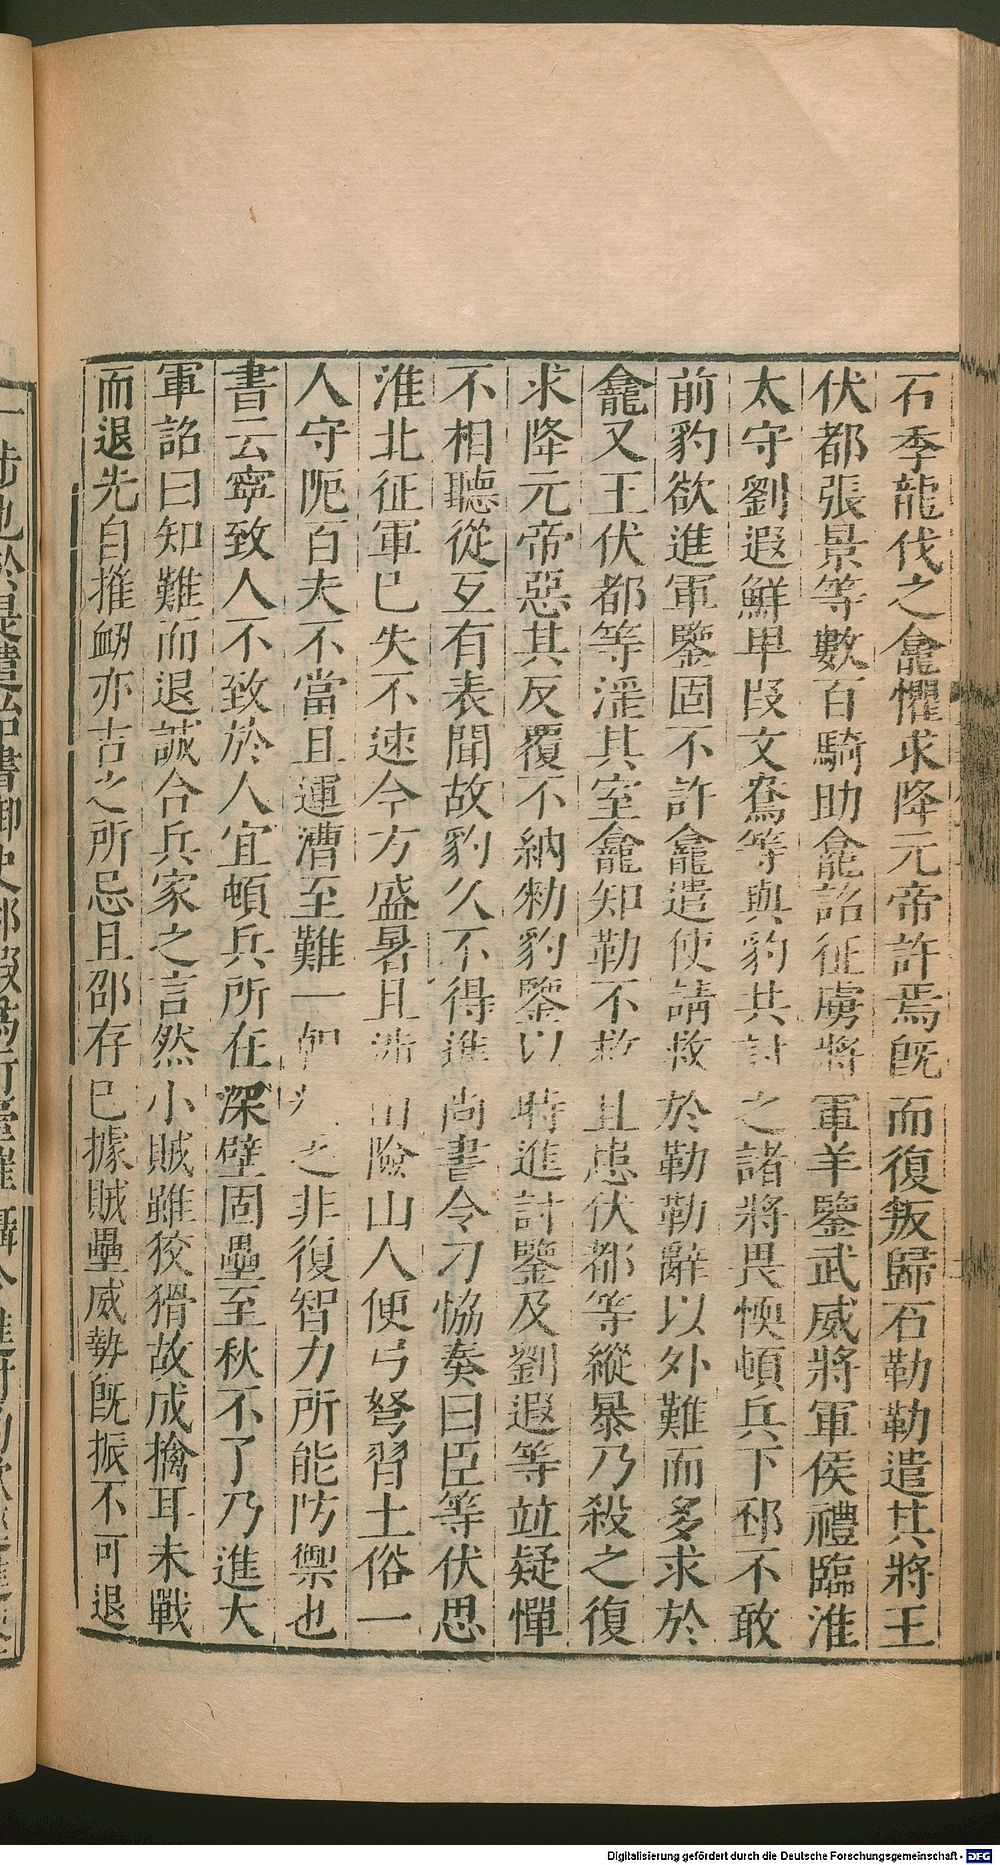 石季龍伐之龕懼求降元帝許焉旣而復叛歸石勒勒遣其將王
伏都張景等數百騎助龕詔征虜將軍羊鑒武威將軍侯禮臨淮
太守劉遐鮮卑叚文鴦等與豹共討之諸將畏愞頓兵下邳不敢
前豹欲進軍鑒固不許龕遣使請救於勒勒辭以外難而多求於
龕又王伏都等淫其室龕知勒不救且患伏都等縱暴乃殺之復
求降元帝惡其反覆不納勑豹鑒以時進討鑒及劉遐等竝疑憚
不相聽從互有表聞故豹久不得進尚書令刁恊奏曰臣等伏思
淮北征軍巳失不速今方盛暑且涉山險山人便弓弩習土俗一
人守阨百夫不當且運漕至難一之非復智力所能防禦也
書云寧致人不致於人宜頓兵所在深壁固壘至秋不了乃進大
軍詔曰知難而退誠合兵家之言然小賊雖狡猾故成擒耳未戰
而退先自摧衂亦古之所忌且邵存巳據賊壘威勢旣振不可退
Digitalisierung gefördert durch die Deutsche Forschungsgemeinschaft - DFG